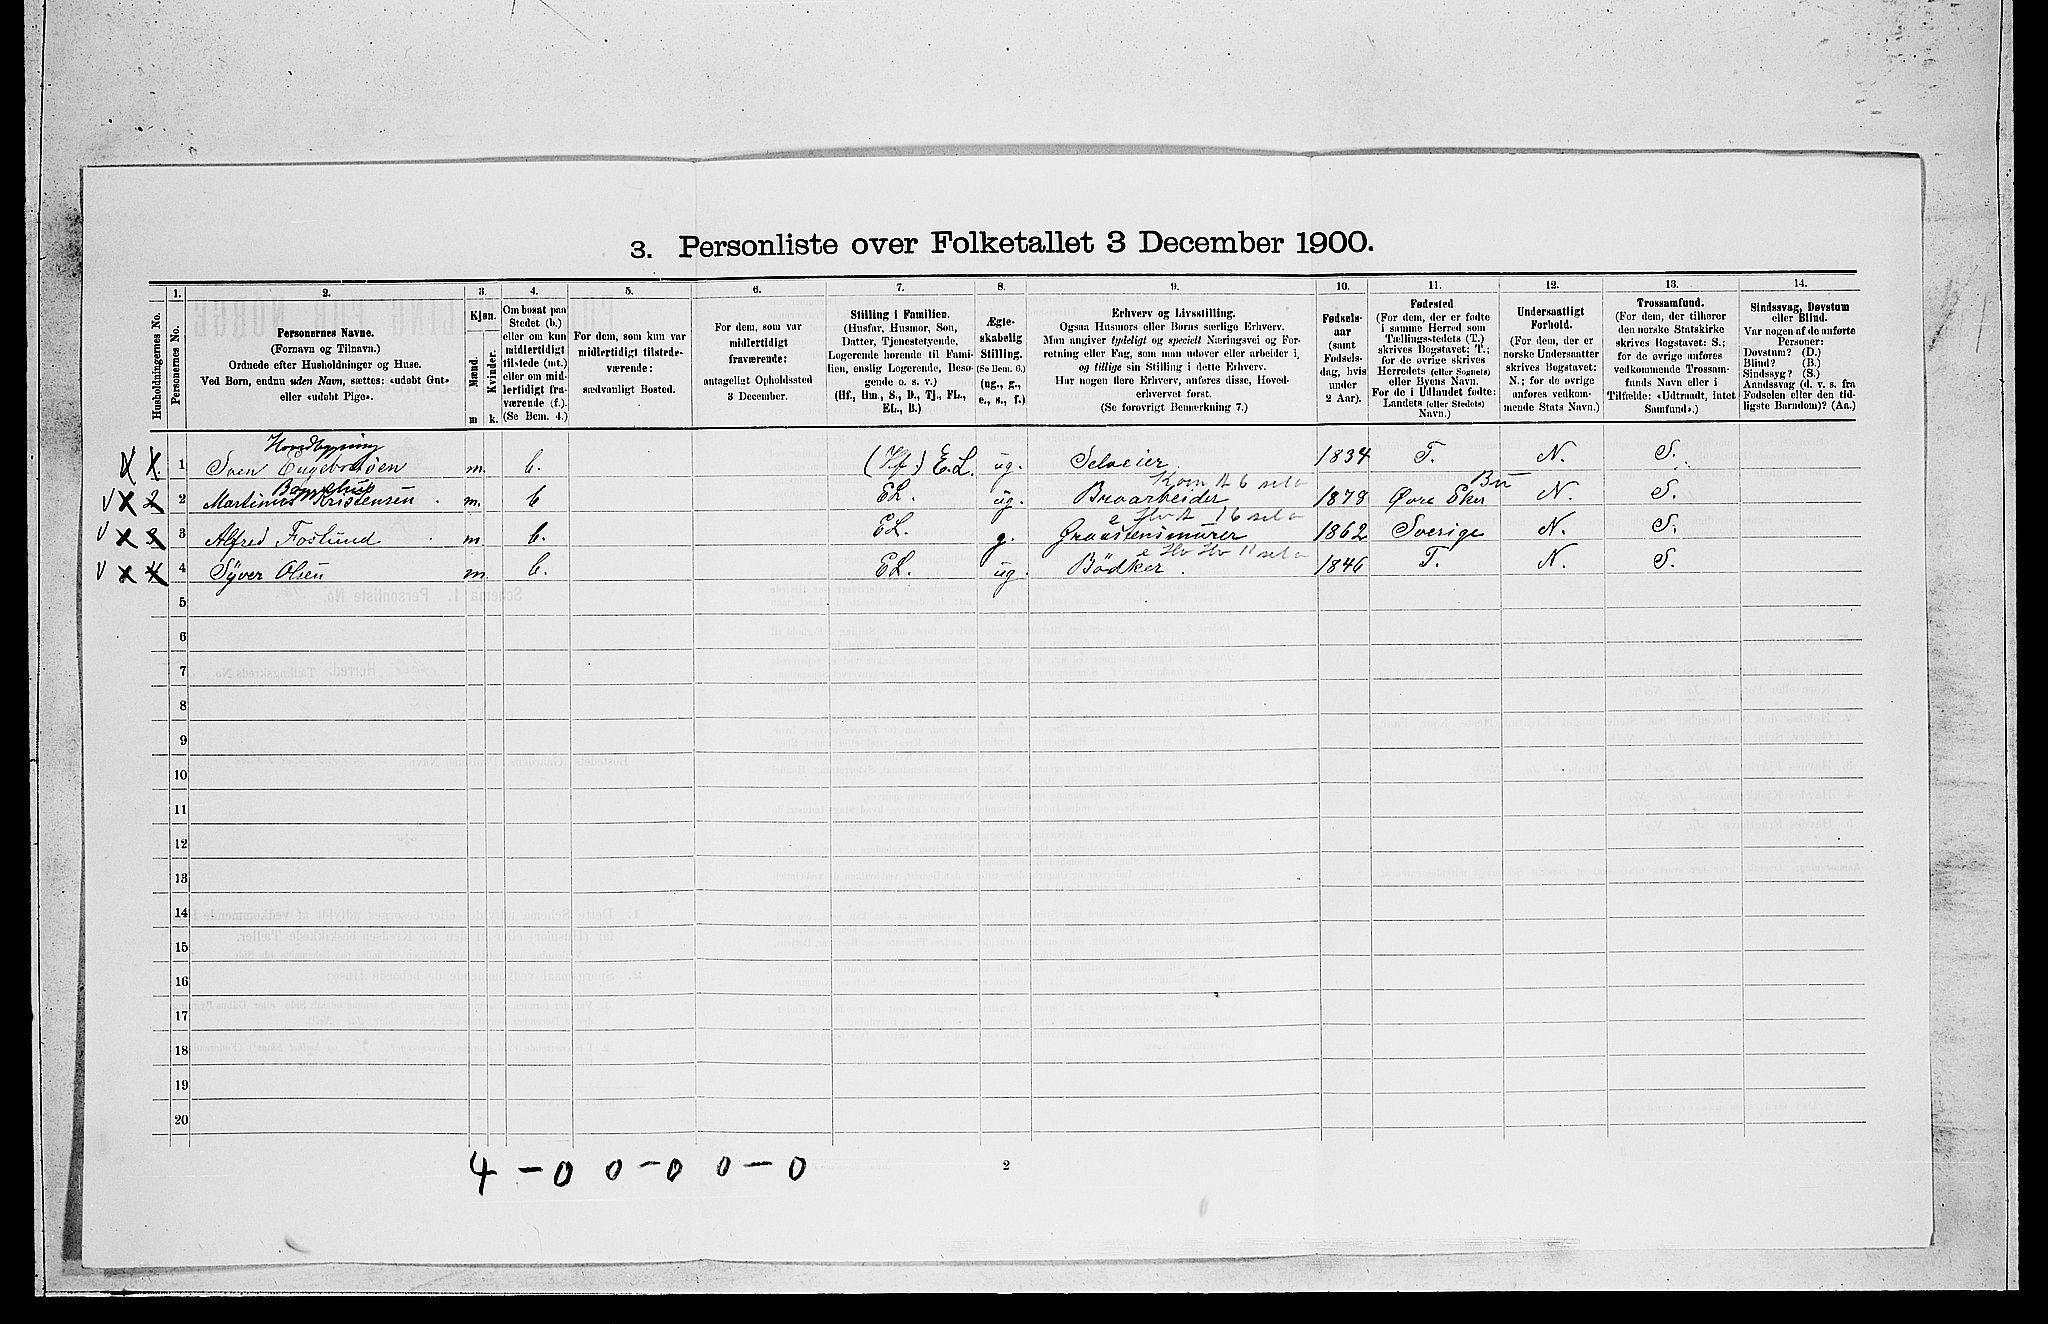 3. Personliste over Folketallet 3 December 1900.
Husholdningernes No.
1.
Personernes No.
2.
Personernes Navne.
(Fornavn og Tilnavn.)
Ordnede efter Husholdninger og Huse.
Ved Børn, endnu uden Navn, sættes: «udøbt Gut»
eller «udøbt Pige».
3.
Kjøn.
Mænd.
Kvinder.
m k.
4.
Om bosat paa
Stedet (b.)
eller om kun
midlertidigt
tilstede (mt.)
eller om mid-
lertidigt fra-
værende (f.).
(Se Bem. 4.)
5.
For dem, som kun var
midlertidigt tilstede-
værende:
sædvanligt Bosted.
6.
For dem, som var
midlertidigt
fraværende:
antageligt Opholdssted
3 December.
7.
Stilling i Familien.
(Husfar, Husmor, Søn,
Datter, Tjenestetyende,
Logerende hørende til Fami-
lien, enslig Logerende, Besø-
gende o. s. v.)
(Hf., Hm., S., D., Tj., FL.,
EL., B.)
8.
Ægte-
skabelig
Stilling.
(Se Bem. 6.)
(ug., g.,
e., s., f.)
9.
Erhverv og Livsstilling.
Ogsaa Husmors eller Børns særlige Erhverv.
Man angiver tydeligt og specielt Næringsvei og For-
retning eller Fag, som man udøver eller arbeider i,
og tillige sin Stilling i dette Erhverv.
Har nogen flere Erhverv, anføres disse, Hoved-
erhvervet først.
(Se forøvrigt Bemerkning 7.)
10.
Fødsels-
aar
(samt
Fødsels-
dag, hvis
under
2 Aar).
11.
Fødested
(For dem, der er fødte
i samme Herred som
Tællingsstedets (T.)
skrives Bogstavet: T.;
for de øvrige skrives
Herredets (eller Sognets)
eller Byens Navn.
For de i Udlandet fødte:
Landets (eller Stedets)
Navn.)
12.
Undersaatligt
Forhold.
(For dem, der er
norske Undersaatter
skrives Bogstavet:
N.; for de øvrige
anføres vedkom-
mende Stats Navn.)
13.
Trossamfund.
(For dem, der tilhører
den norske Statskirke
skrives Bogstavet: S.;
for de øvrige anføres
vedkommende Trossam-
funds Navn eller i
Tilfælde: «Udtraadt, intet
Samfund».)
14.
Sindssvag, Døvstum
eller Blind.
Var nogen af de anførte
Personer:
Døvstum? (D.)
Blind? (B.)
Sindssyg? (S.)
Aandssvag (d. v. s. fra
Fødselen eller den tid-
ligste Barndom)? (Aa.)
Hovedbygning
1 Sven Engebretsen m. b. (Hf.) E.L. ug. Selveier. 1834 T. N. S.
2 Martinus Kristensen m. b EL. ug. Broarbeider 1878 Øvre Eker Bu N. S.
3 Alfred Foslund m. b. EL. g. Graastensmurer 1862 Sverige N. S.
4 Syver Olsen m. b. EL. ug. Bødker. 1846 T. N. S.
5
6
7
8
9
10
11
12
13
14
15
16
17
18
19
20
4 – 0 0 – 0 0 – 0
2